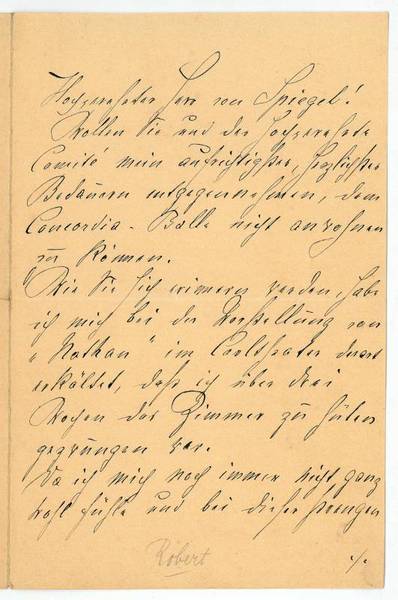 Hochverehrter Herr von Spiegel!
Wollen Sie und das hochverehrte
Comité mein aufrichtigstes, herzlichstes
Bedauern entgegennehmen, dem
Concordia-Balle nicht anwohnen
zu können.
Wie Sie sich erinnern werden, habe
ich mich bei der Vorstellung von
"Nathan" im Carltheater derart
erkältet, daß ich über drei
Wochen das Zimmer zu hüten
gezwungen war.
Da ich mich noch immer nicht ganz
wohl fühle und bei dieser strengen
Robert
./.